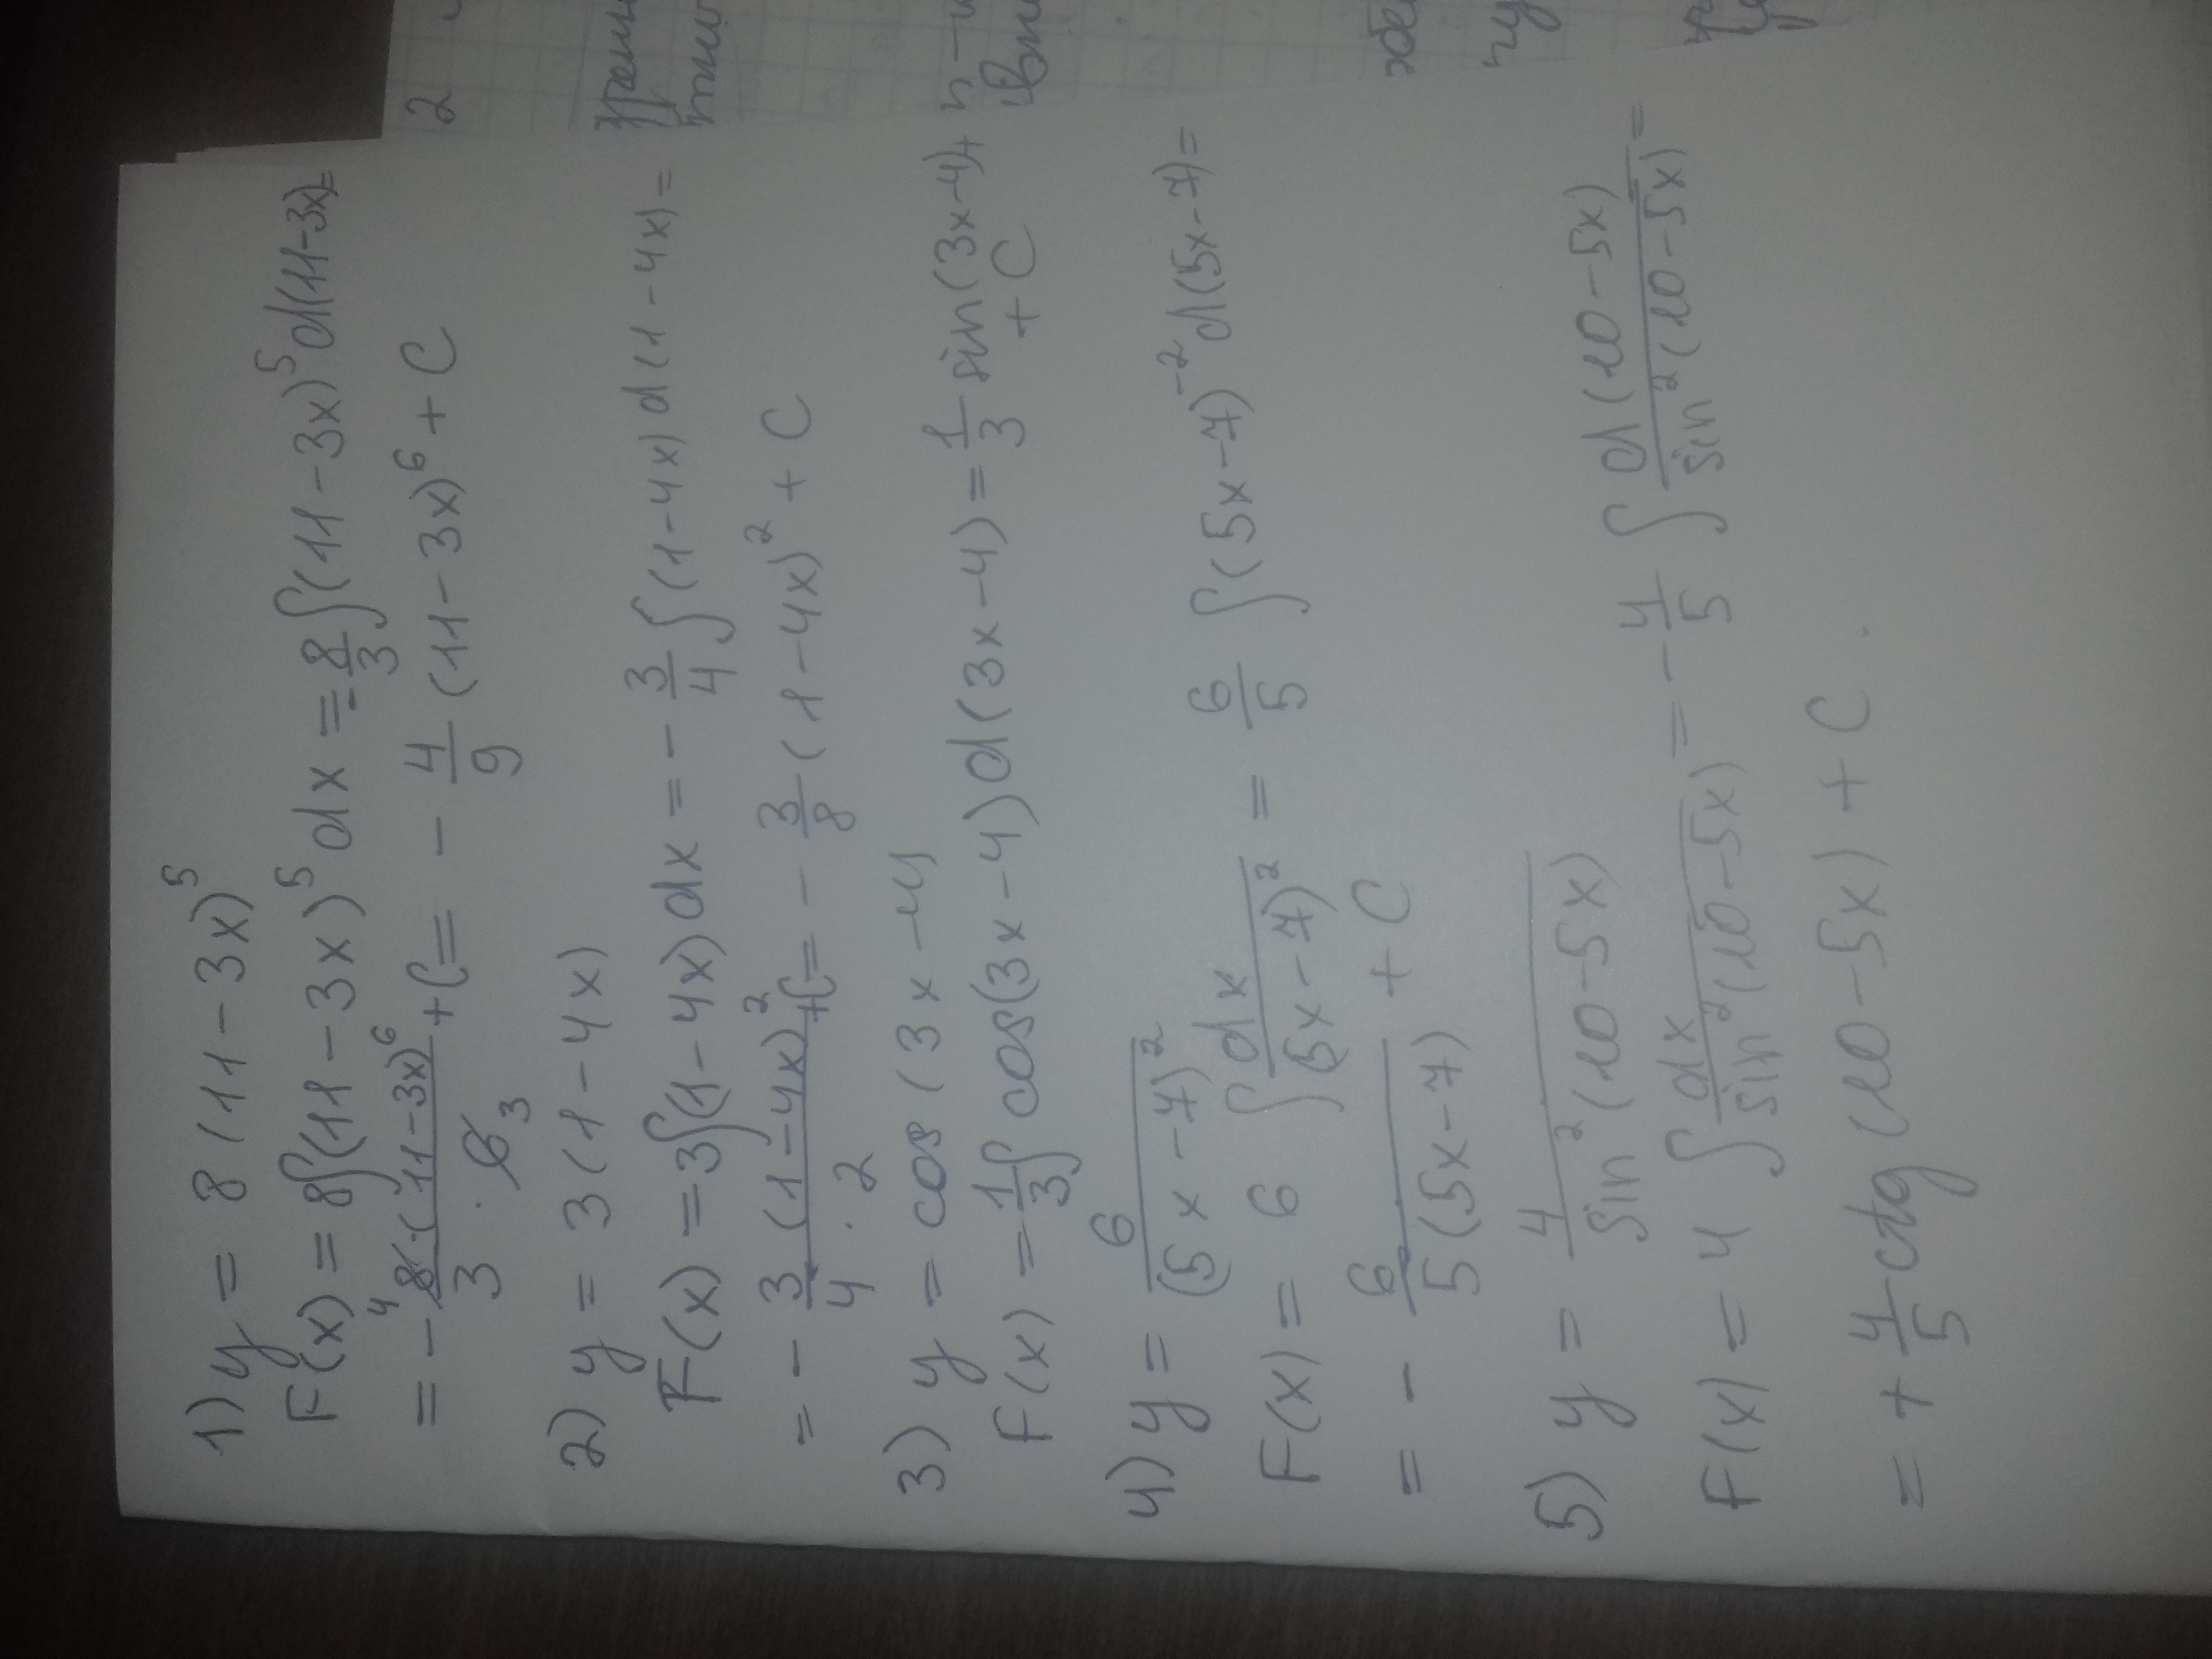 1) y = 8 (11 - 3x)^5
F(x) = 8∫(11 - 3x)^5 dx = -8/3 ∫(11 - 3x)^5 d(11-3x) =
= - 8·(11-3x)^6 / 3 · 6 + C = - 4/9 (11 - 3x)^6 + C
4
3
2) y = 3 (1 - 4x)
F(x) = 3∫(1 - 4x) dx = - 3/4 ∫(1-4x) d(1-4x) =
= - 3/4 · (1-4x)^2 / 2 + C = - 3/8 (1 - 4x)^2 + C
3) y = cos (3x - 4)
F(x) = 1/3 ∫ cos(3x - 4) d(3x - 4) = 1/3 sin(3x-4) +
+ C
4) y = 6 / (5x - 7)^2
F(x) = 6 ∫ dx / (5x - 7)^2 = 6/5 ∫(5x-7)^-2 d(5x-7) =
= - 6 / 5(5x-7) + C
5) y = 4 / sin^2 (10-5x)
F(x) = 4 ∫ dx / sin^2(10-5x) = - 4/5 ∫ d(10-5x) / sin^2(10-5x) =
= + 4/5 ctg (10-5x) + C.
2